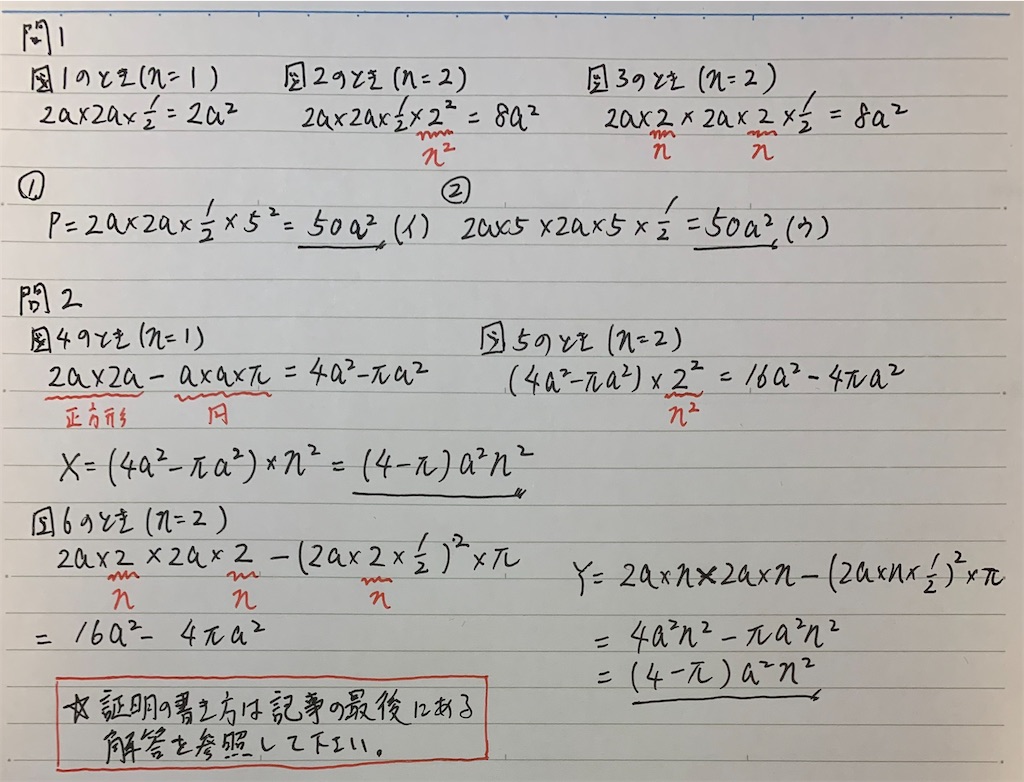 問1
図1のとき(n=1) 図2のとき(n=2) 図3のとき(n=2)
2a×2a×1/2=2a² 2a×2a×1/2×2²=8a² 2a×2×2a×2×1/2=8a²
n² n n
① ②
P=2a×2a×1/2×5²=50a²(イ) 2a×5×2a×5×1/2=50a²(ウ)
問2
図4のとき(n=1) 図5のとき(n=2)
2a×2a-a×a×π=4a²-πa² (4a²-πa²)×2²=16a²-4πa²
正方形 円 n²
X=(4a²-πa²)×n²=(4-π)a²n²
図6のとき(n=2)
2a×2×2a×2-(2a×2×1/2)²×π
n n n
=16a²-4πa²
Y=2a×n×2a×n-(2a×n×1/2)²×π
=4a²n²-πa²n²
=(4-π)a²n²
☆証明の書き方は記事の最後にある
解答を参照して下さい。